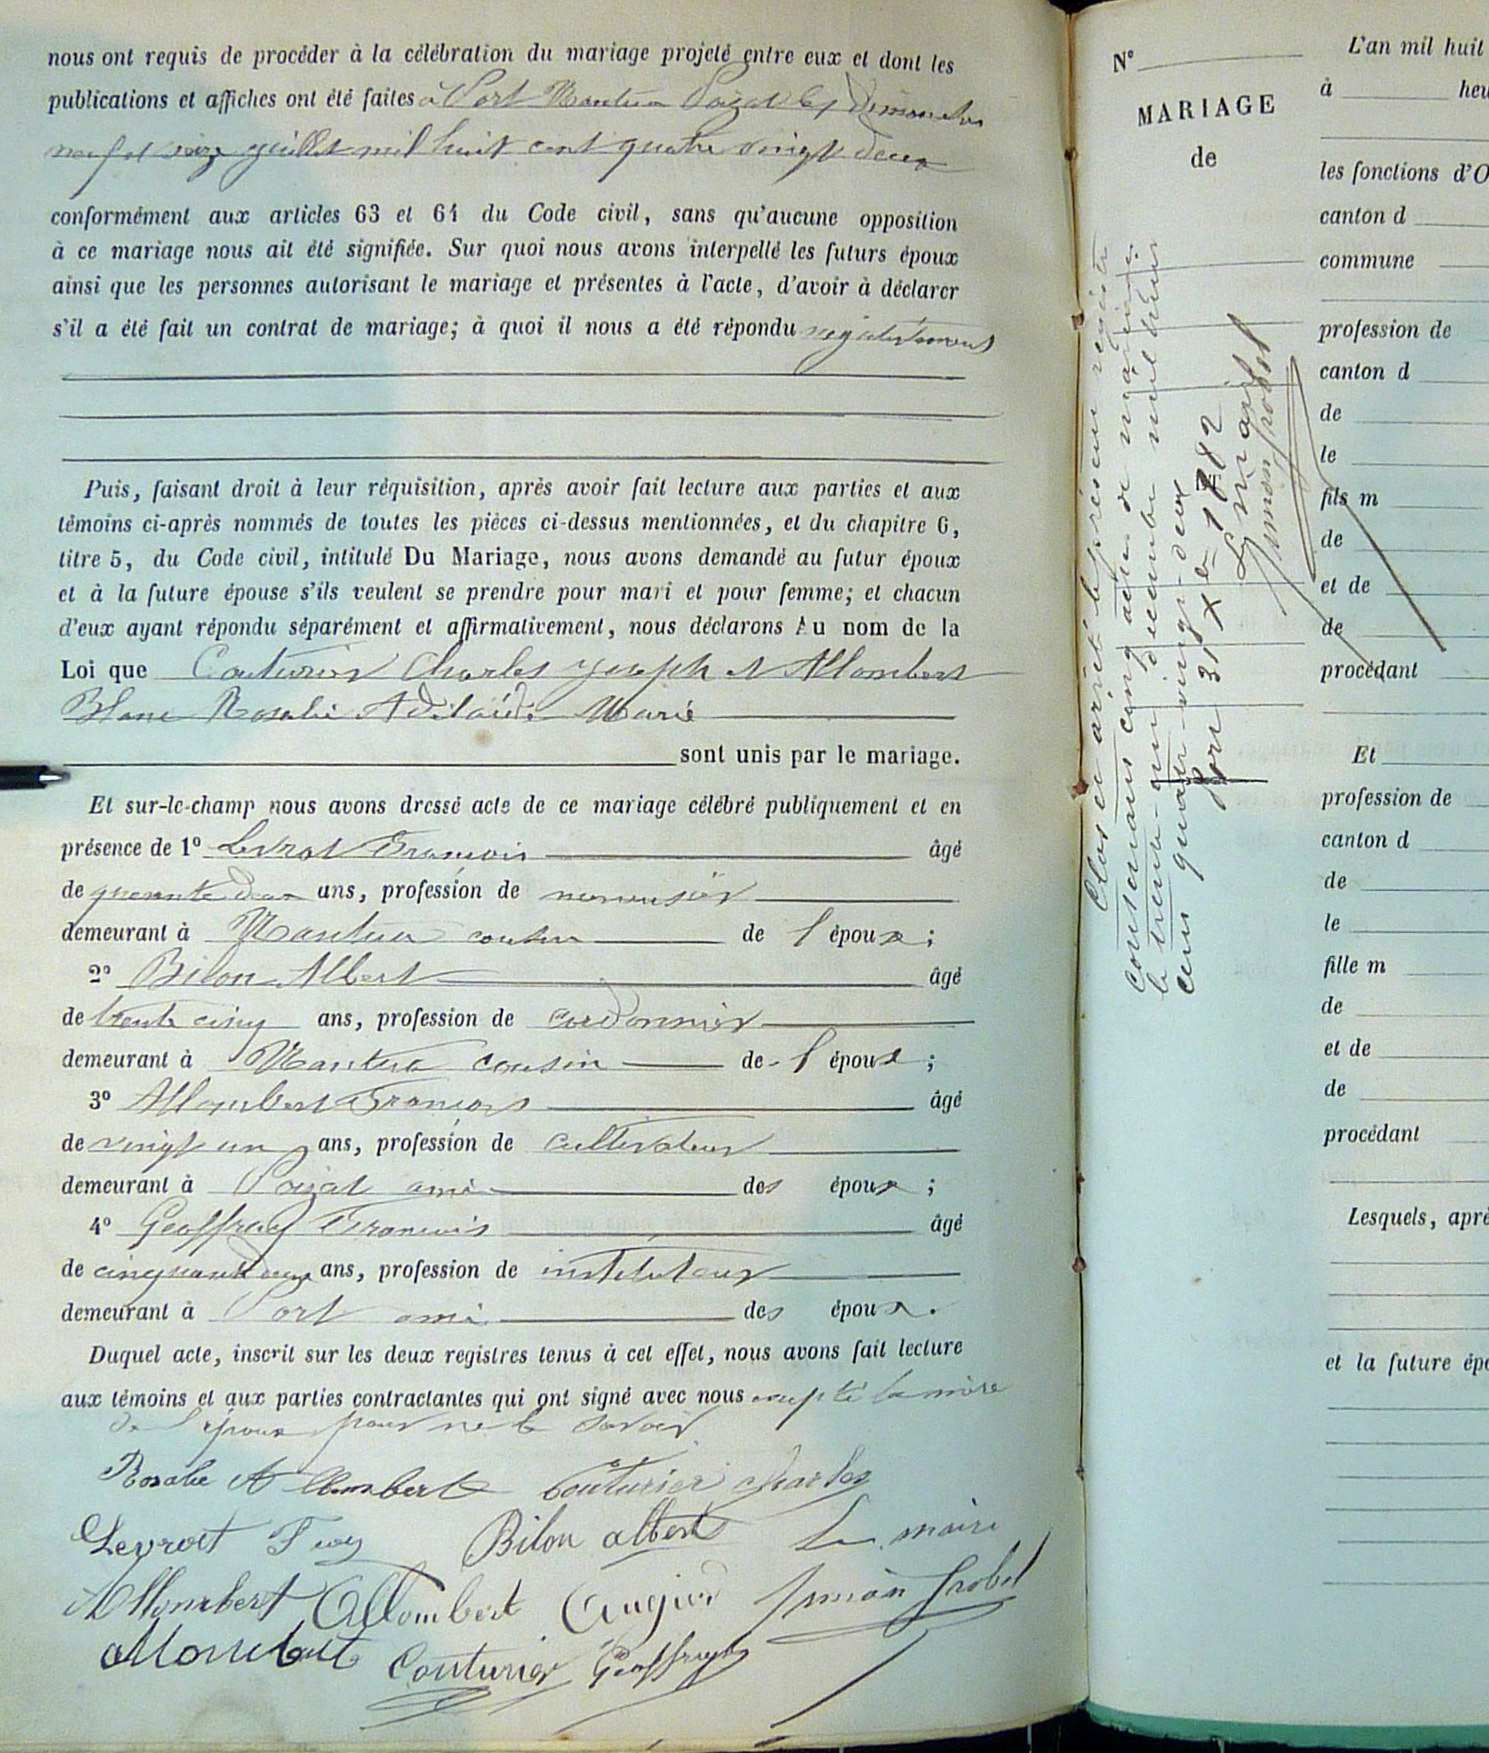 nous ont requis de procéder à la célébration du mariage projeté entre eux et dont les
publications et affiches ont été faites à Port Nantua Poizat les dimanches
neuf et seize juillet mil huit cent quatre vingt deux
conformément aux articles 63 et 64 du Code civil, sans qu'aucune opposition
à ce mariage nous ait été signifiée. Sur quoi nous avons interpellé les futurs époux
ainsi que les personnes autorisant le mariage et présentes à l'acte, d'avoir à déclarer
s'il a été fait un contrat de mariage; à quoi il nous a été répondu négativement
Puis, faisant droit à leur réquisition, après avoir fait lecture aux parties et aux
témoins ci-après nommés de toutes les pièces ci-dessus mentionnées, et du chapitre 6,
titre 5, du Code civil, intitulé Du Mariage, nous avons demandé au futur époux
et à la future épouse s'ils veulent se prendre pour mari et pour femme; et chacun
d'eux ayant répondu séparément et affirmativement, nous déclarons Au nom de la
Loi que Couturier Charles Joseph et Allombert
Blanc Rosalie Adélaïde Marie
sont unis par le mariage.
Et sur-le-champ nous avons dressé acte de ce mariage célébré publiquement et en
présence de 1° Levrat François âgé
de quarante deux ans, profession de menuisier
demeurant à Nantua cousin de l'époux ;
2° Bilon Albert âgé
de trente cinq ans, profession de cordonnier
demeurant à Nantua cousin de l'époux ;
3° Allombert François âgé
de vingt un ans, profession de cultivateur
demeurant à Poizat ami des époux ;
4° Geoffray François âgé
de cinquante deux ans, profession de instituteur
demeurant à Port ami des époux.
Duquel acte, inscrit sur les deux registres tenus à cet effet, nous avons fait lecture
aux témoins et aux parties contractantes qui ont signé avec nous excepté la mère
de l'époux pour ne le savoir
Rosalie Allombert Couturier Charles
Levrat Bilon albert Le maire
Allombert Allombert Augier Grobel
Allombert Couturier Geoffray
Clos et arrêté le présent registre
contenant cinq actes de mariage.
le trente-un décembre mil huit
cent quatre-vingt-deux
Port 31 Xe 1882
Le maire
Grobel
N°
MARIAGE
de
L'an mil huit
à heu
les fonctions d'O
canton d
commune
profession de
canton d
de
le
fils m
de
et de
de
procédant
Et
profession de
canton d
de
le
fille m
de
et de
de
procédant
Lesquels, aprè
et la future épo